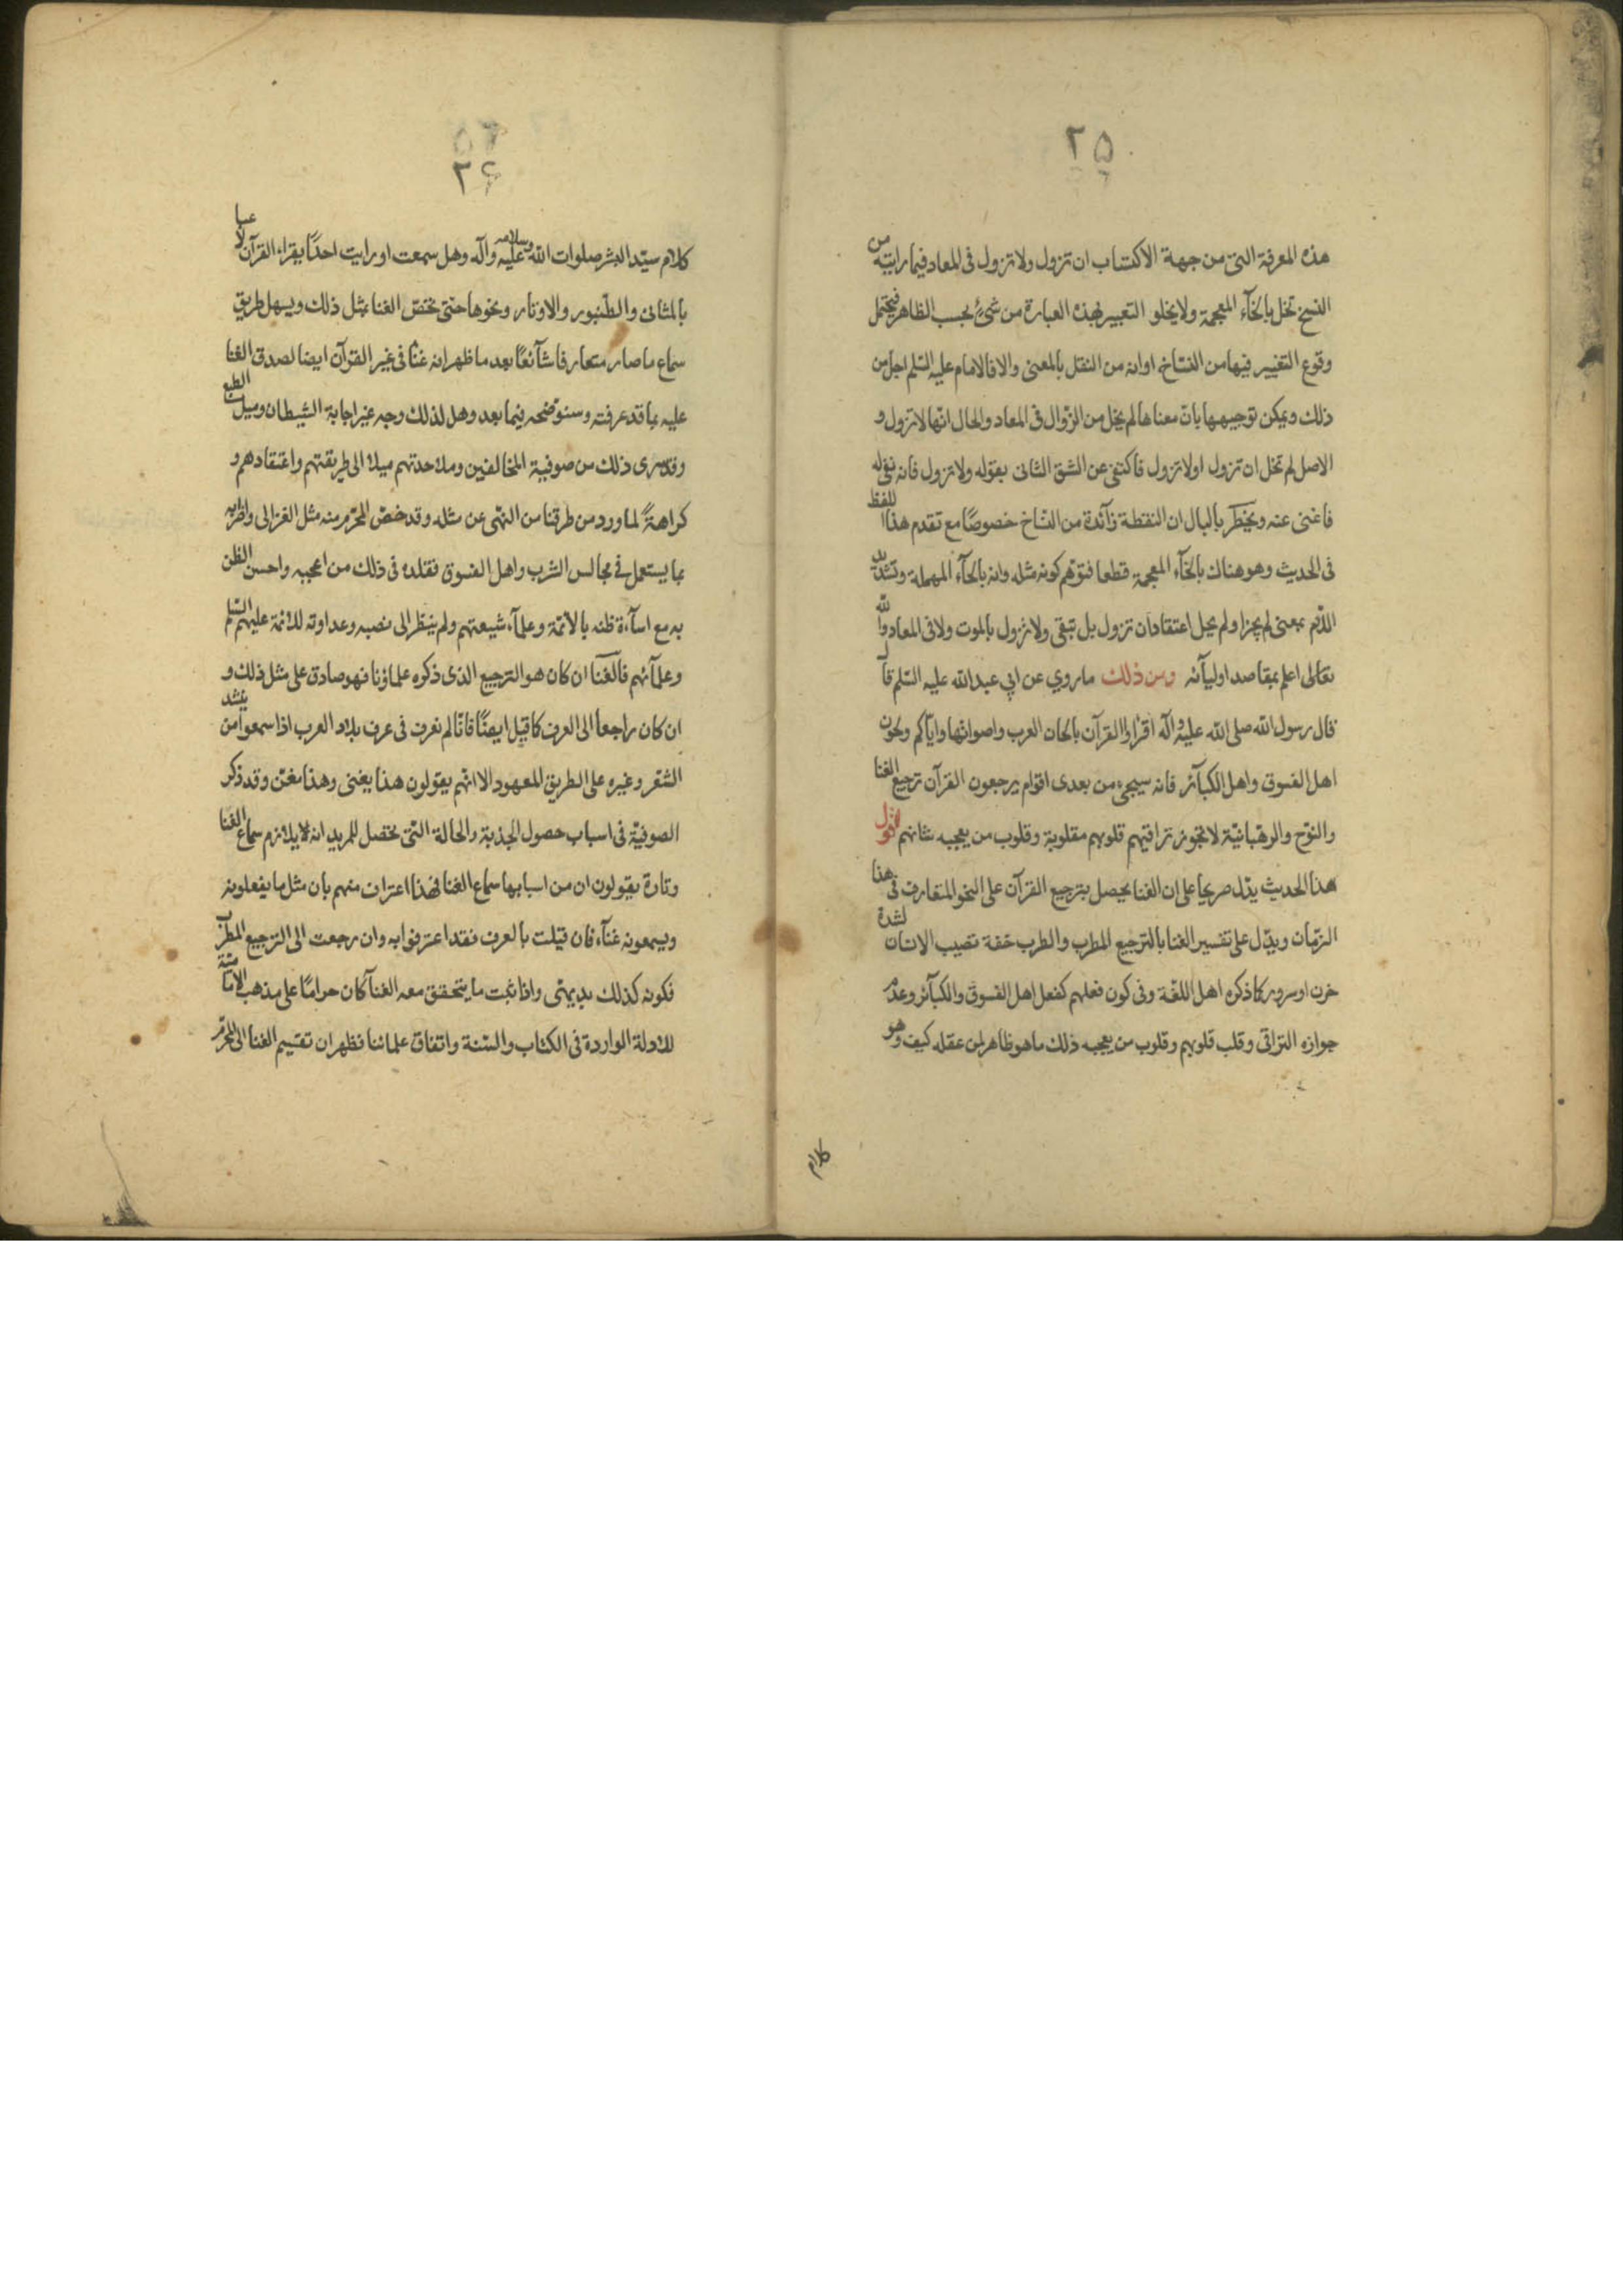 ٢٥
هذه المعرفة التى من جهة الاكتساب ان تزول ولا تزول فى المعاد فيما رايته من
النسخ تخل بالخآء المعجمة ولا يخلو التعبير بهذه العبارة من شئ بحسب الظاهر فيحتمل
وقوع التغيير فيها من النسّاخ او انه من النقل بالمعنى والا فالامام عليه السّلم اجل من
ذلك ويمكن توجيهها بان معناها لم يخل من الزّوال فى المعاد والحال انّها لا تزول و
الاصل لم تخل ان تزول اولا تزول فاكتفى عن الشق الثانى بقوله ولا تزول فانه نفى له
فاغنى عنه ويخطر بالبال ان النقطة زآئدة من النسّاخ خصوصًا مع تقدم هذا اللفظ
فى الحديث وهو هناك بالخآء المعجمة قطعا فتوّهم كونه مثله وانه بالحآء المهملة وتشديد
اللّام بمعنى لم يجز او لم يحل اعتقاد ان تزول بل تبقى ولا تزول بالموت ولا فى المعاد والله
تعالى اعلم بمقاصد اوليآئه ومن ذلك ما روي عن ابي عبد الله عليه السّلم قال
قال رسول الله صلى الله عليه وآله اقراوا القرآن بالحان العرب واصواتها واياكم ولحون
اهل الفسوق واهل الكبآئر فانه سيجىء من بعدى اقوام يرجعون القرآن ترجيع الغنا
والنوّح والرهبانيّة لا تجوز تراقيهم قلوبهم مقلوبة وقلوب من يعجبه شانهم اقول
هذا الحديث يدّل صريحا على ان الغنا يحصل بترجيع القرآن على النحو المتعارف فى هذا
الزمان ويدّل على تفسير الغنا بالترجيع المطرب والطرب خفة تصيب الانسان لشدة
حزن او سرور كما ذكره اهل اللغة وفى كون فعلهم كفعل اهل الفسوق والكبآئر وعدم
جوازه التراقى وقلب قلوبهم وقلوب من يعجبه ذلك ما هو ظاهر لمن عقله كيف وهو
كلام
٢۶
كلام سيّد البشر صلوات الله وسلامه عليه وآله وهل سمعت او رايت احدًا يقراء القرآن لاعبا
بالمثانى والطنبور والاوتار ونحوها حتى تختصّ الغنا بمثل ذلك ويسهل طريق
سماع ما صار متعارفا شآئعًا بعد ما ظهر انه غنا فى غير القرآن ايضا لصدق الغنا
عليه بما قد عرفته وسنوضحه فيما بعد وهل لذلك وجه غير اجابة الشيطان وميل الطبع
وقد سرى ذلك من صوفية المخالفين وملاحدتهم ميلا الى طريقتهم واعتقادهم و
كراهةً لما ورد من طرقنا من النهى عن مثله وقد خصّ المحرّم منه مثل الغزالى واضرابه
بما يستعمل فى مجالس الشرب واهل الفسوق فقلده فى ذلك من اعجبه واحسن الظن
به مع اسآءة ظنه بالائمّة وعلمآء شيعتهم ولم ينظر الى نصبه وعداوته للائمة عليهم السّلم
وعلمآئهم فالغنا ان كان هو الترجيع الذى ذكره علماؤنا فهو صادق على مثل ذلك و
ان كان راجعا الى العرف كما قيل ايضًا فانّا لم نعرف فى عرف بلاد العرب اذا سمعوا من ينشد
الشعر وغيره على الطريق المعهود الا انهم يقولون هذا يغنى وهذا مغن وقد ذكر
الصوفيّة فى اسباب حصول الجذبة والحالة التى تحصل للمريد انه يلازم سماع الغنا
وتارة يقولون ان من اسبابها سماع الغنا فهذا اعتراف منهم بان مثل ما يفعلونه
ويسمعونه غنآء فان قيلت بالعرف فقد اعترفوا به وان رجعت الى الترجيع المطرّب
فكونه كذلك بديهى واذا ثبت ما يتحقق معه الغنآ كان حرامًا على مذهب الاماميّة
للادلة الواردة فى الكتاب والسّنة واتفاق علمائنا فظهر ان تقسيم الغنا الى المحرّم